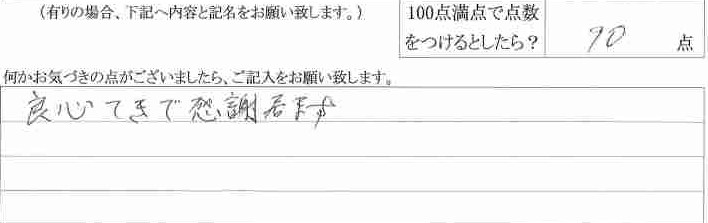 (有りの場合、下記へ内容と記名をお願い致します。)
100点満点で点数
をつけるとしたら？ 90 点
何かお気づきの点がございましたら、ご記入をお願い致します。
良心てきで感謝します